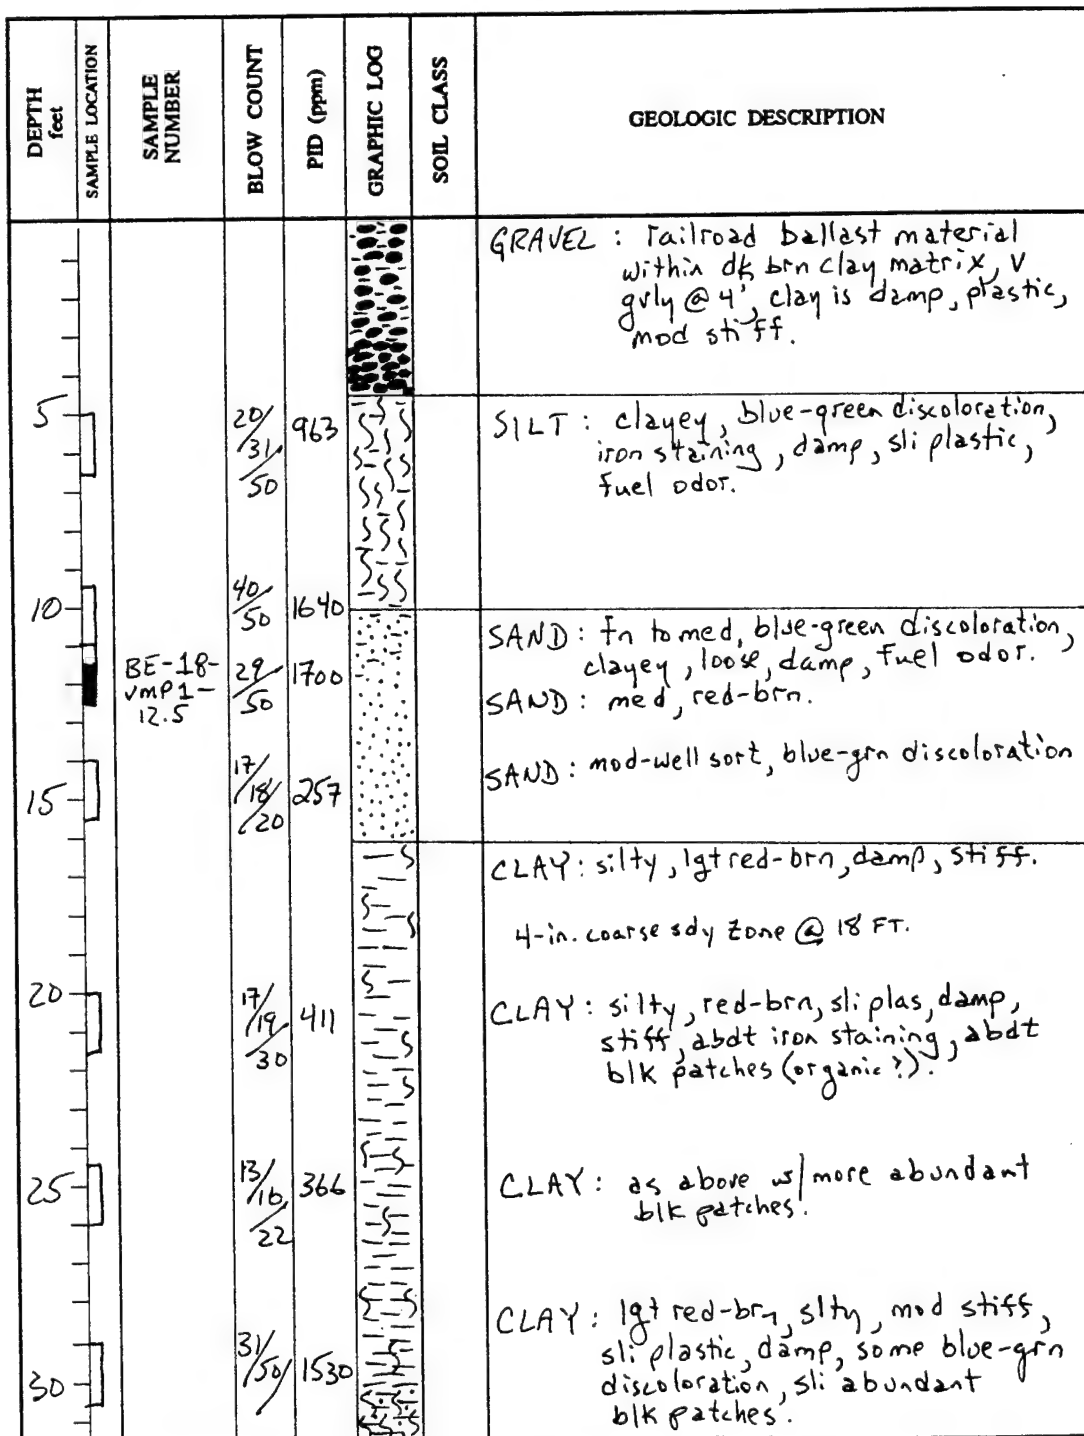 DEPTH
feet
SAMPLE LOCATION
SAMPLE
NUMBER
BLOW COUNT
PID (ppm)
GRAPHIC LOG
SOIL CLASS
GEOLOGIC DESCRIPTION
GRAVEL : railroad ballast material
within dk brn clay matrix, v
grly @ 4', clay is damp, plastic,
mod stiff.
5
20/
31/
50
963
SILT : clayey, blue-green discoloration,
iron staining, damp, sli plastic,
fuel odor.
10
40/
50
1640
SAND : fn to med, blue-green discoloration,
clayey, loose, damp, fuel odor.
BE-18-
VMP1-
12.5
29/
50
1700
SAND : med, red-brn.
15
17/
18/
20
257
SAND : mod-well sort, blue-grn discoloration
CLAY : silty, lgt red-brn, damp, stiff.
4-in. coarse sdy zone @ 18 FT.
20
17/
19/
30
411
CLAY : silty, red-brn, sli plas, damp,
stiff, abdt iron staining, abdt
blk patches (organic?).
25
13/
16/
22
366
CLAY : as above w/ more abundant
blk patches.
30
31/
50/
1530
CLAY : lgt red-brn, slty, mod stiff,
sli plastic, damp, some blue-grn
discoloration, sli abundant
blk patches.